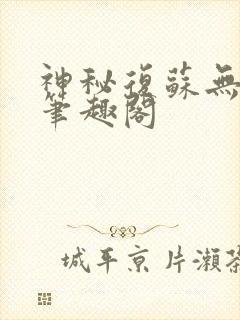 神秘復蘇無
筆趣閣
城平京 片瀨茶